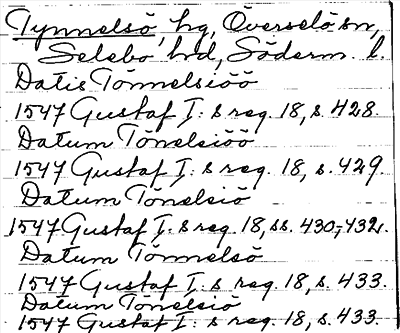 Tynnelsö, hg, Överselö sn,
Selebo hd, Söderm. l.
Datis Tönnelsiöö
1547 Gustaf I:s reg. 18, s. 428.
Datum Tönelsiöö
1547 Gustaf I:s reg. 18, s. 429.
Datum Tönelsiö
1547 Gustaf I:s reg. 18, ss. 430,-432.
Datum Tönnelsö
1547 Gustaf I:s reg. 18, s. 433.
Datum Tönelsiö
1547 Gustaf I:s reg. 18, s. 433.